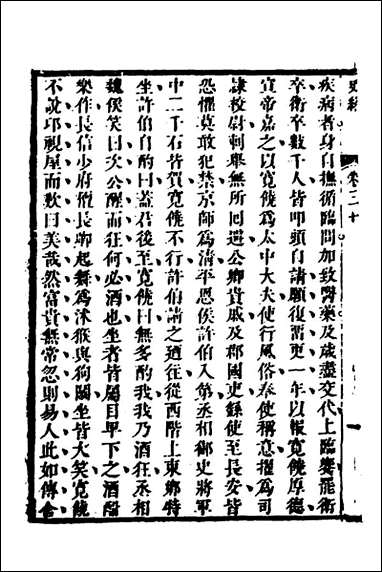 史緯 卷二十
疾病者身自撫循臨問加致醫藥及歲盡交代上臨饗罷衛
卒衛卒數千人皆叩頭自請願復留更一年以報寬饒厚德
宣帝嘉之以寬饒為太中大夫使行風俗奉使稱意擢為司
隸校尉刺舉無所回避公卿貴戚及郡國吏繇使至長安皆
恐懼莫敢犯禁京師為清平恩侯許伯入第丞相御史將軍
中二千石皆賀寬饒不行許伯請之迺往從西階上東鄉特
坐許伯自酌曰蓋君後至寬饒曰無多酌我我乃酒狂丞相
魏侯笑曰次公醒而狂何必酒也坐者皆屬目卑下之酒酣
樂作長信少府檀長卿起舞為沐猴與狗鬭坐皆大笑寬饒
不說卬視屋而歎曰美哉然富貴無常忽則易人此如傳舍